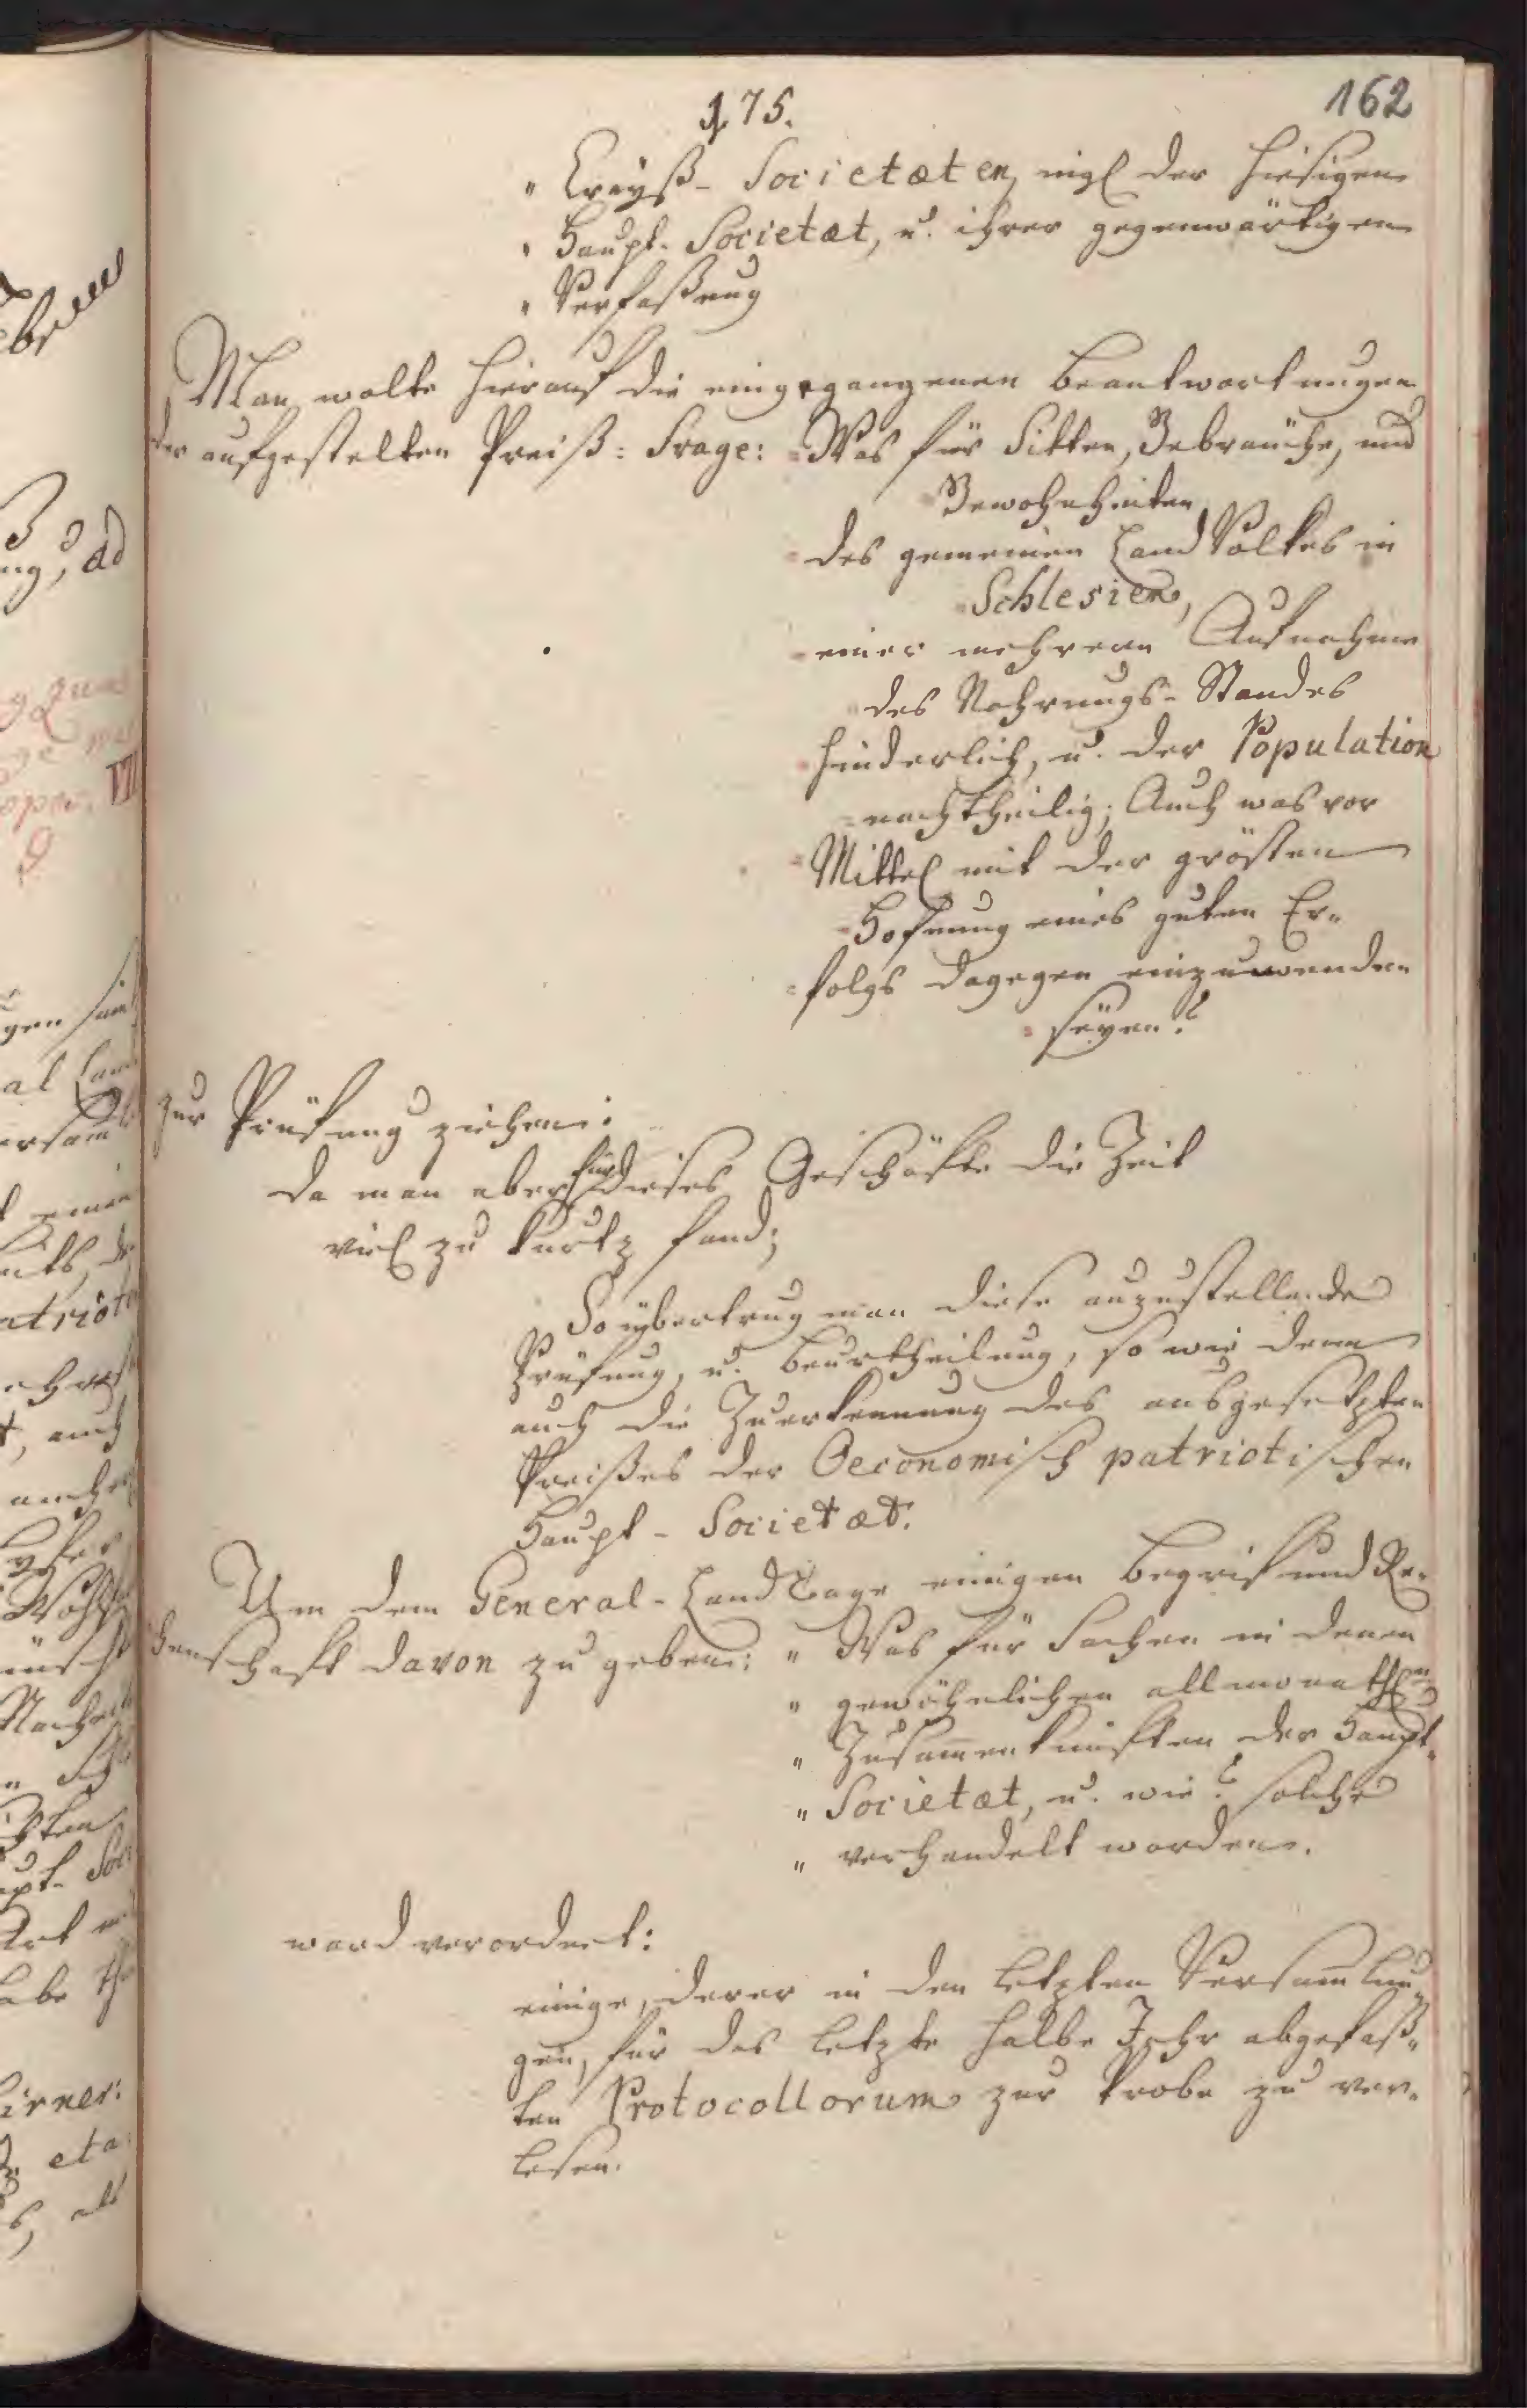 162
175.
" Creyß- Societæten, ingl der hiesigen
" Haupt- Societæt, u. ihrer gegenwärtigen
" Verfaßung
Man wolte hierauf die eingegangenen Beantwortungen
der aufgestelten Preiß: Frage: Was für Sitten, Gebräuche, und
Gewohnheiten
des gemeinen Land Volkes in
Schlesien,
einer mehrern Aufnahme
des Nahrungs- Standes
hinderlich, u. der Population
nachtheilig; Auch was vor
Mittel mit der grösten
Hofnung eines guten Er„
folgs dagegen einzuwenden
seyen?
zur Prüfung ziehen:
da man aber für dieses Geschäfte die Zeit
viel zu kurtz fand;
So übertrug man diese anzustellende
Prüfung, u. Beurtheilung, so wie denn
auch die Zuerkennung des ausgesetzten
Preißes der Oeconomisch patriotischen
Haupt- Societæt.
Um dem General- Land Tage einigen Begrif und Re„
chenschaft davon zu geben: " Was für Sachen in denen
" gewöhnlichen allmonathl.en
" Zusam̄enkünften der Haupt„
" Societæt, u. wie? solche
" verhandelt worden.
ward verordnet:
einige, derer in den letzten Versam̄lun„
gen, für das letzte halbe Jahr abgefaß„
ten Protocollorum zur Probe zu ver„
lesen.